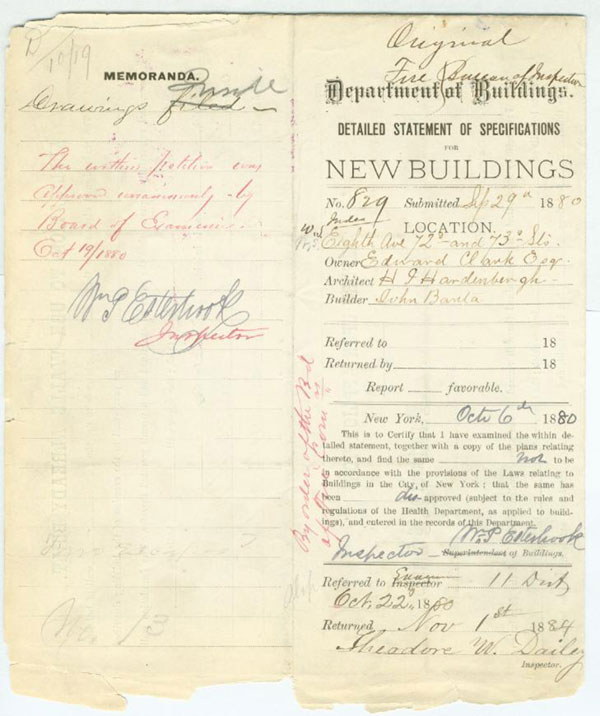 D
10/19
MEMORANDA.
Inside
Drawings filed
The within petition was
approved unanimously by
Board of Examiners
Oct 19/1880
Wm P Esterbrook
Inspector
No. 13
Original
Fire Bureau of Inspection
Department of Buildings.
DETAILED STATEMENT OF SPECIFICATIONS
FOR
NEW BUILDINGS
No. 829 Submitted Sep 29th 1880
Index
LOCATION.
W.S. Eighth Ave 72d and 73d Sts.
Owner Edward Clark Esq.
Architect H J Hardenbergh
Builder John Banta
Referred to 18
Returned by 18
Report favorable.
New York, Octr 6th 1880
This is to Certify that I have examined the within de-
tailed statement, together with a copy of the plans relating
thereto, and find the same not to be
in accordance with the provisions of the Laws relating to
Buildings in the City of New York; that the same has
been dis approved (subject to the rules and
regulations of the Health Department, as applied to build-
ings), and entered in the records of this Department.
Wm P Esterbrook
Inspector Superintendent of Buildings.
By order of the Bd
Referred to Examiner Inspector 11 Dist
Oct. 22d, 1880
Returned Nov 1st 1884
Theadore W. Dailey
Inspector.